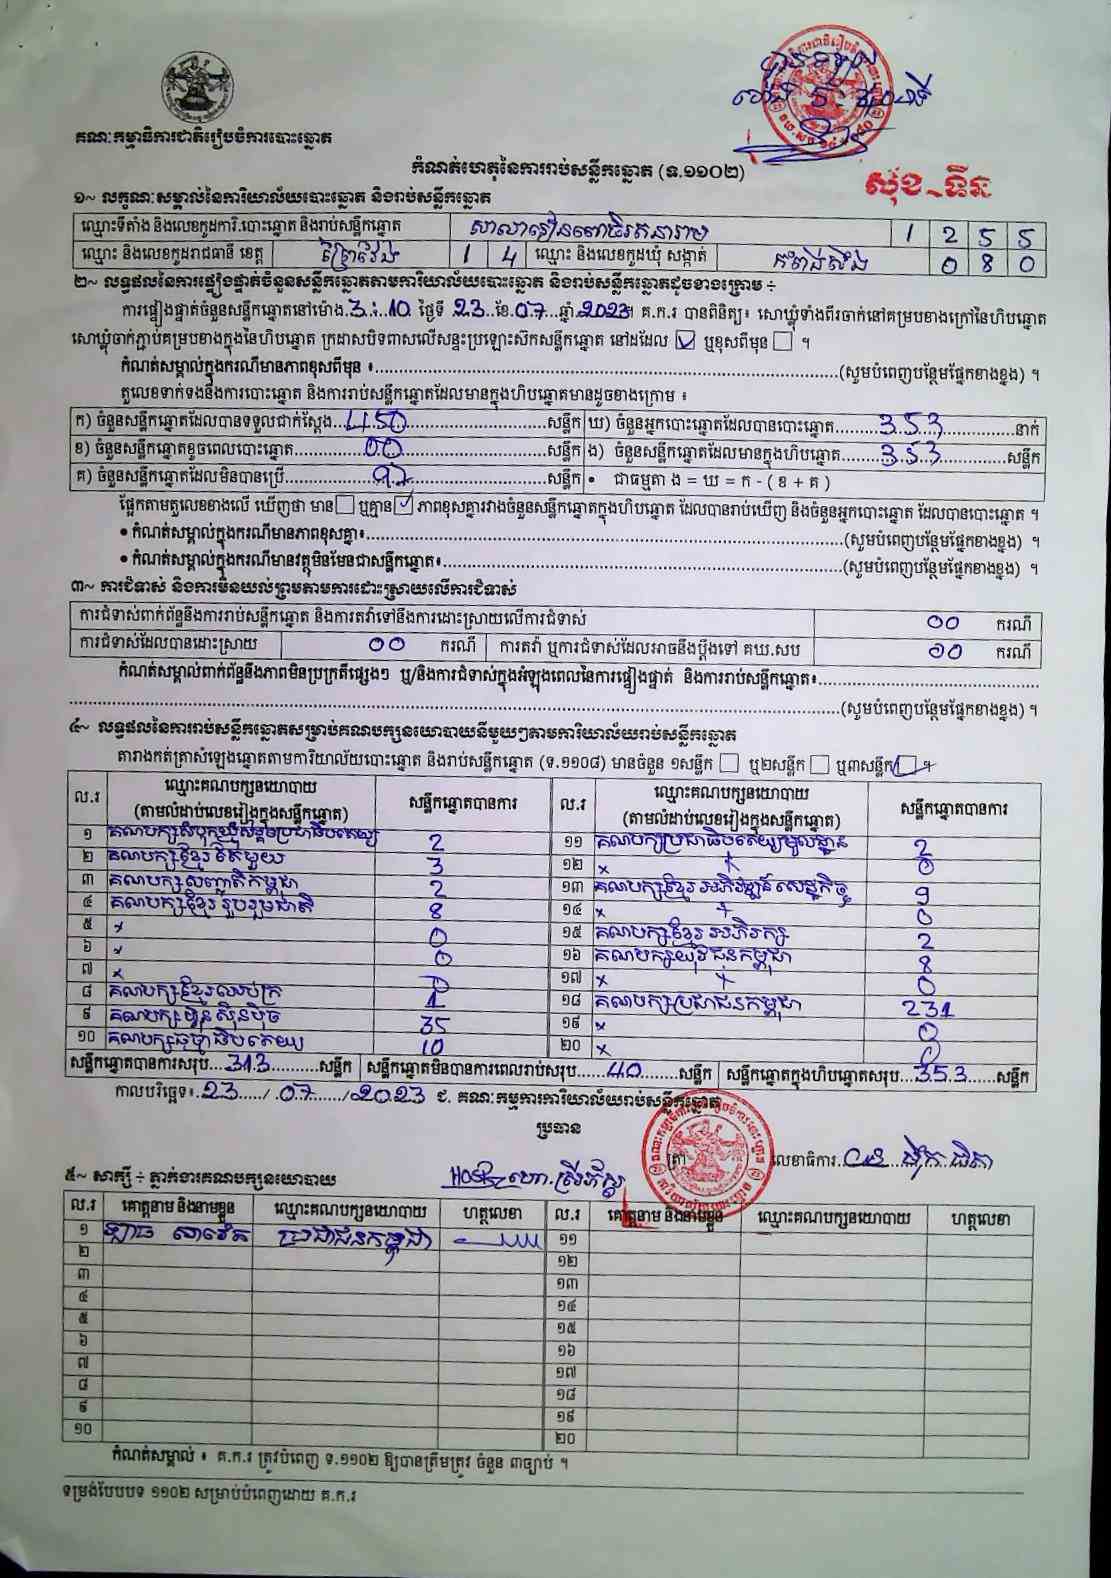 គណៈកម្មាធិការជាតិរៀបចំការបោះឆ្នោត
កំណត់ហេតុនៃការរាប់សន្លឹកឆ្នោត (ទ.១១០២)
សុខ ~ ទីរ
១~ លក្ខណៈសម្គាល់នៃការិយាល័យបោះឆ្នោត និងរាប់សន្លឹកឆ្នោត
ឈ្មោះទីតាំង និងលេខកូដការិ.បោះឆ្នោត និងរាប់សន្លឹកឆ្នោត សាលារៀនពោធិរតនារាម 1 2 5 5
ឈ្មោះ និងលេខកូដរាជធានី ខេត្ត ព្រៃវែង 1 4 ឈ្មោះ និងលេខកូដឃុំ សង្កាត់ 0 8 0
២~ លទ្ធផលនៃការផ្ទៀងផ្ទាត់ចំនួនសន្លឹកឆ្នោតតាមការិយាល័យបោះឆ្នោត និងរាប់សន្លឹកឆ្នោតដូចខាងក្រោម ÷
ការផ្ទៀងផ្ទាត់ចំនួនសន្លឹកឆ្នោតនៅម៉ោង.3.:.10 ថ្ងៃទី 23 ខែ.07...ឆ្នាំ.2023។ គ.ក.រ បានពិនិត្យ៖ សោឃ្លុំទាំងពីរចាក់នៅគម្របខាងក្រៅនៃហិបឆ្នោត
សោឃ្លុំចាក់ភ្ជាប់គម្របខាងក្នុងនៃហិបឆ្នោត ក្រដាសបិទពាសលើសន្ទះប្រឡោះស៊កសន្លឹកឆ្នោត នៅដដែល ☑ ឬខុសពីមុន ☐ ។
កំណត់សម្គាល់ក្នុងករណីមានភាពខុសពីមុន ៖......(សូមបំពេញបន្ថែមផ្នែកខាងខ្នង) ។
តួលេខទាក់ទងនឹងការបោះឆ្នោត និងការរាប់សន្លឹកឆ្នោតដែលមានក្នុងហិបឆ្នោតមានដូចខាងក្រោម ៖
ក) ចំនួនសន្លឹកឆ្នោតដែលបានទទួលជាក់ស្តែង..450......សន្លឹក ឃ) ចំនួនអ្នកបោះឆ្នោតដែលបានបោះឆ្នោត......353......នាក់
ខ) ចំនួនសន្លឹកឆ្នោតខូចពេលបោះឆ្នោត......00......សន្លឹក ង) ចំនួនសន្លឹកឆ្នោតដែលមានក្នុងហិបឆ្នោត......353......សន្លឹក
គ) ចំនួនសន្លឹកឆ្នោតដែលមិនបានប្រើ......97......សន្លឹក • ជាធម្មតា ង = ឃ = ក - ( ខ + គ )
ផ្អែកតាមតួលេខខាងលើ ឃើញថា មាន ☐ ឬគ្មាន ☑ ភាពខុសគ្នារវាងចំនួនសន្លឹកឆ្នោតក្នុងហិបឆ្នោត ដែលបានរាប់ឃើញ និងចំនួនអ្នកបោះឆ្នោត ដែលបានបោះឆ្នោត ។
• កំណត់សម្គាល់ក្នុងករណីមានភាពខុសគ្នា៖......(សូមបំពេញបន្ថែមផ្នែកខាងខ្នង) ។
• កំណត់សម្គាល់ក្នុងករណីមានវត្ថុមិនមែនជាសន្លឹកឆ្នោត៖......(សូមបំពេញបន្ថែមផ្នែកខាងខ្នង) ។
៣~ ការជំទាស់ និងការមិនយល់ព្រមតាមការដោះស្រាយលើការជំទាស់
ការជំទាស់ពាក់ព័ន្ធនឹងការរាប់សន្លឹកឆ្នោត និងការតវ៉ាទៅនឹងការដោះស្រាយលើការជំទាស់ 00 ករណី
ការជំទាស់ដែលបានដោះស្រាយ 00 ករណី ការតវ៉ា ឬការជំទាស់ដែលអាចនឹងប្តឹងទៅ គឃ.សប 00 ករណី
កំណត់សម្គាល់ពាក់ព័ន្ធនឹងភាពមិនប្រក្រតីផ្សេងៗ ឬ/និងការជំទាស់ក្នុងអំឡុងពេលនៃការផ្ទៀងផ្ទាត់ និងការរាប់សន្លឹកឆ្នោត៖......
......(សូមបំពេញបន្ថែមផ្នែកខាងខ្នង) ។
៤~ លទ្ធផលនៃការរាប់សន្លឹកឆ្នោតសម្រាប់គណបក្សនយោបាយនីមួយៗតាមការិយាល័យរាប់សន្លឹកឆ្នោត
តារាងកត់ត្រាសំឡេងឆ្នោតតាមការិយាល័យបោះឆ្នោត និងរាប់សន្លឹកឆ្នោត (ទ.១១០៨) មានចំនួន ១សន្លឹក ☐ ឬ២សន្លឹក ☐ ឬ៣សន្លឹក ☑ ។
ល.រ ឈ្មោះគណបក្សនយោបាយ (តាមលំដាប់លេខរៀងក្នុងសន្លឹកឆ្នោត) សន្លឹកឆ្នោតបានការ ល.រ ឈ្មោះគណបក្សនយោបាយ (តាមលំដាប់លេខរៀងក្នុងសន្លឹកឆ្នោត) សន្លឹកឆ្នោតបានការ
១ គណបក្សសំបុកឃ្មុំសង្គមប្រជាធិបតេយ្យ 2 ១១ គណបក្សប្រជាធិបតេយ្យមូលដ្ឋាន 2
២ គណបក្សខ្មែរតែមួយ 3 ១២ × 0
៣ គណបក្សសញ្ជាតិកម្ពុជា 2 ១៣ គណបក្សខ្មែរអភិវឌ្ឍន៍សេដ្ឋកិច្ច 9
៤ គណបក្សខ្មែររួបរួមជាតិ 8 ១៤ × 0
៥ × 0 ១៥ គណបក្សខ្មែរអភិរក្ស 2
៦ × 0 ១៦ គណបក្សយុវជនកម្ពុជា 8
៧ × 0 ១៧ × 0
៨ គណបក្សខ្មែរឈប់ក្រ 1 ១៨ គណបក្សប្រជាជនកម្ពុជា 231
៩ គណបក្សហ៊្វុនស៊ិនប៉ិច 35 ១៩ × 0
១០ គណបក្សធម្មាធិបតេយ្យ 10 ២០ × 0
សន្លឹកឆ្នោតបានការសរុប...313......សន្លឹក សន្លឹកឆ្នោតមិនបានការពេលរាប់សរុប......40......សន្លឹក សន្លឹកឆ្នោតក្នុងហិបឆ្នោតសរុប...353......សន្លឹក
កាលបរិច្ឆេទ៖.23...../.07....../2023 ជ. គណៈកម្មការការិយាល័យរាប់សន្លឹកឆ្នោត
ប្រធាន
ត្រា
លេខាធិការ
៥~ សាក្សី ÷ ភ្នាក់ងារគណបក្សនយោបាយ
ល.រ គោត្តនាម និងនាមខ្លួន ឈ្មោះគណបក្សនយោបាយ ហត្ថលេខា ល.រ គោត្តនាម និងនាមខ្លួន ឈ្មោះគណបក្សនយោបាយ ហត្ថលេខា
១ ប្រជាជនកម្ពុជា ១១
២ ១២
៣ ១៣
៤ ១៤
៥ ១៥
៦ ១៦
៧ ១៧
៨ ១៨
៩ ១៩
១០ ២០
កំណត់សម្គាល់ ៖ គ.ក.រ ត្រូវបំពេញ ទ.១១០២ ឱ្យបានត្រឹមត្រូវ ចំនួន ៣ច្បាប់ ។
ទម្រង់បែបបទ ១១០២ សម្រាប់បំពេញដោយ គ.ក.រ